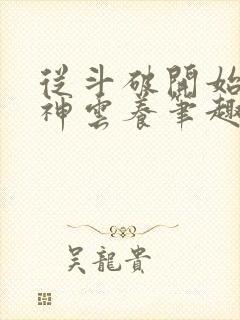 從斗破開始
神雲養筆趣
吳龍貴